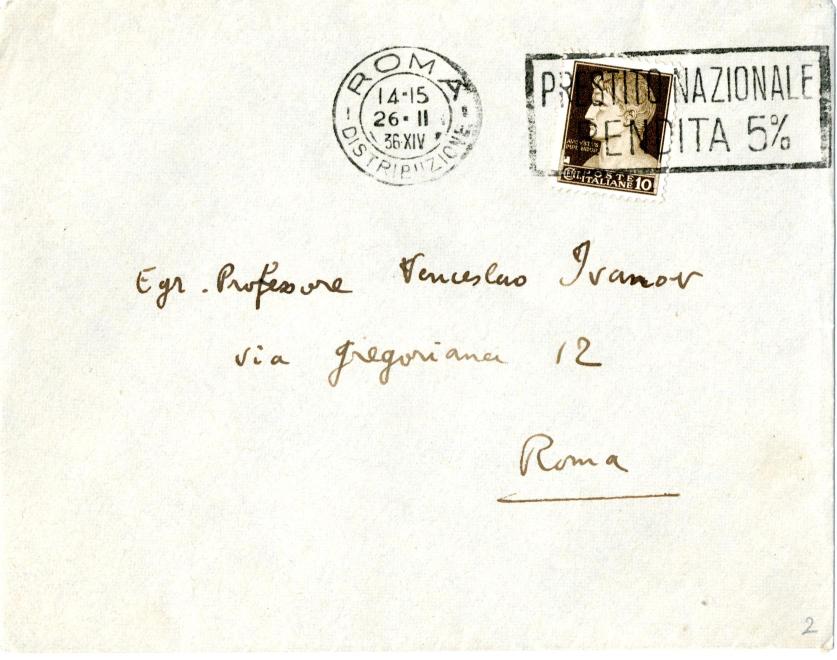 ROMA
14-15
26·II
36·XIV
DISTRIBUZIONE
PRESTITO NAZIONALE
RENDITA 5%
POSTE
ITALIANE 10
Egr. Professore Venceslao Ivanov
via gregoriana 12
Roma
2